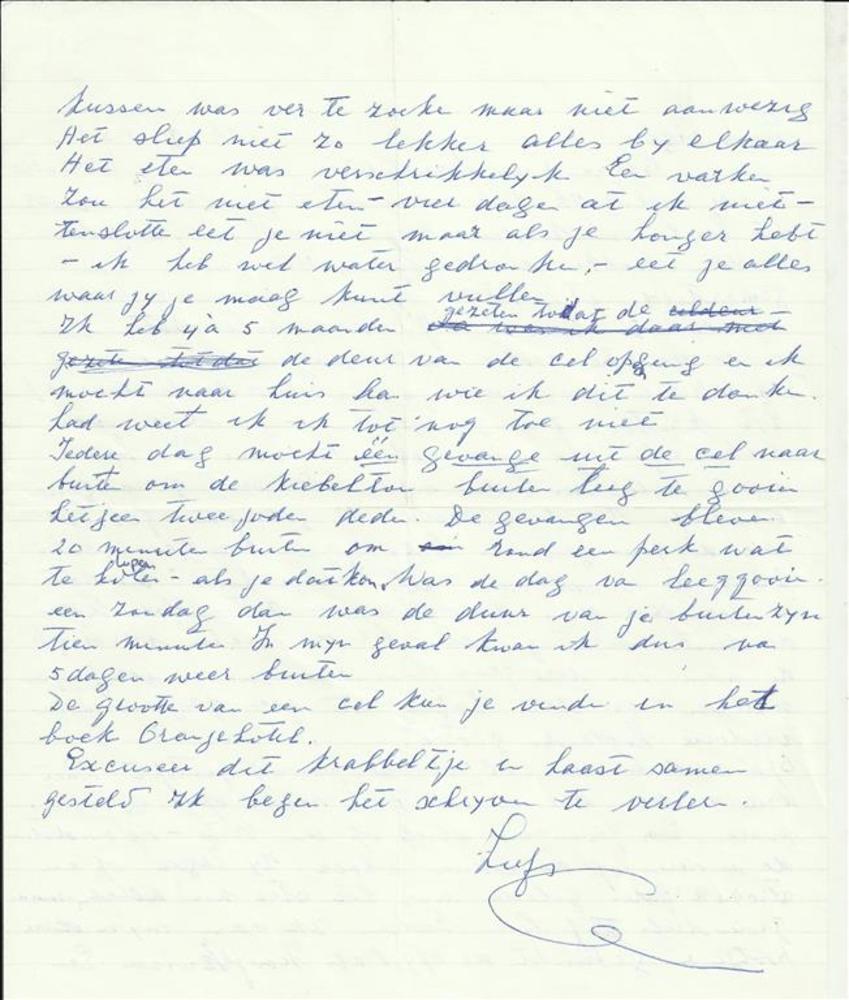 kussen was ver te zoeke maar niet aanwezig
Het sliep niet zo lekker alles by elkaar
Het eten was verschrikkelyk Een varken
zou het niet eten - vier dagen at ik niet -
tenslotte eet je niet maar als je honger hebt
- ik heb wel water gedronken, - eet je alles
waar jy je maag kunt vullen
Ik heb 5 maanden gezeten totdat de celdeur
de deur van de cel openging en ik
mocht naar huis wie ik dit te danken
had weet ik tot nog toe niet
Iedere dag mocht één gevange uit de cel naar
buiten om de kiebelton buiten leeg te gooien
twee joden deden. De gevangen bleven
20 minuten buiten om rond een perk wat
te lopen - als je dat kon. Was de dag van leeggooien
een zondag dan was de duur van je buitenzyn
tien minuten In myn geval kwam ik dus na
5 dagen weer buiten
De grootte van een cel kun je vinden in het
boek Oranjehotel.
Excuseer dit krabbeltje in haast samen
gesteld Ik begon het schryven te verleren.